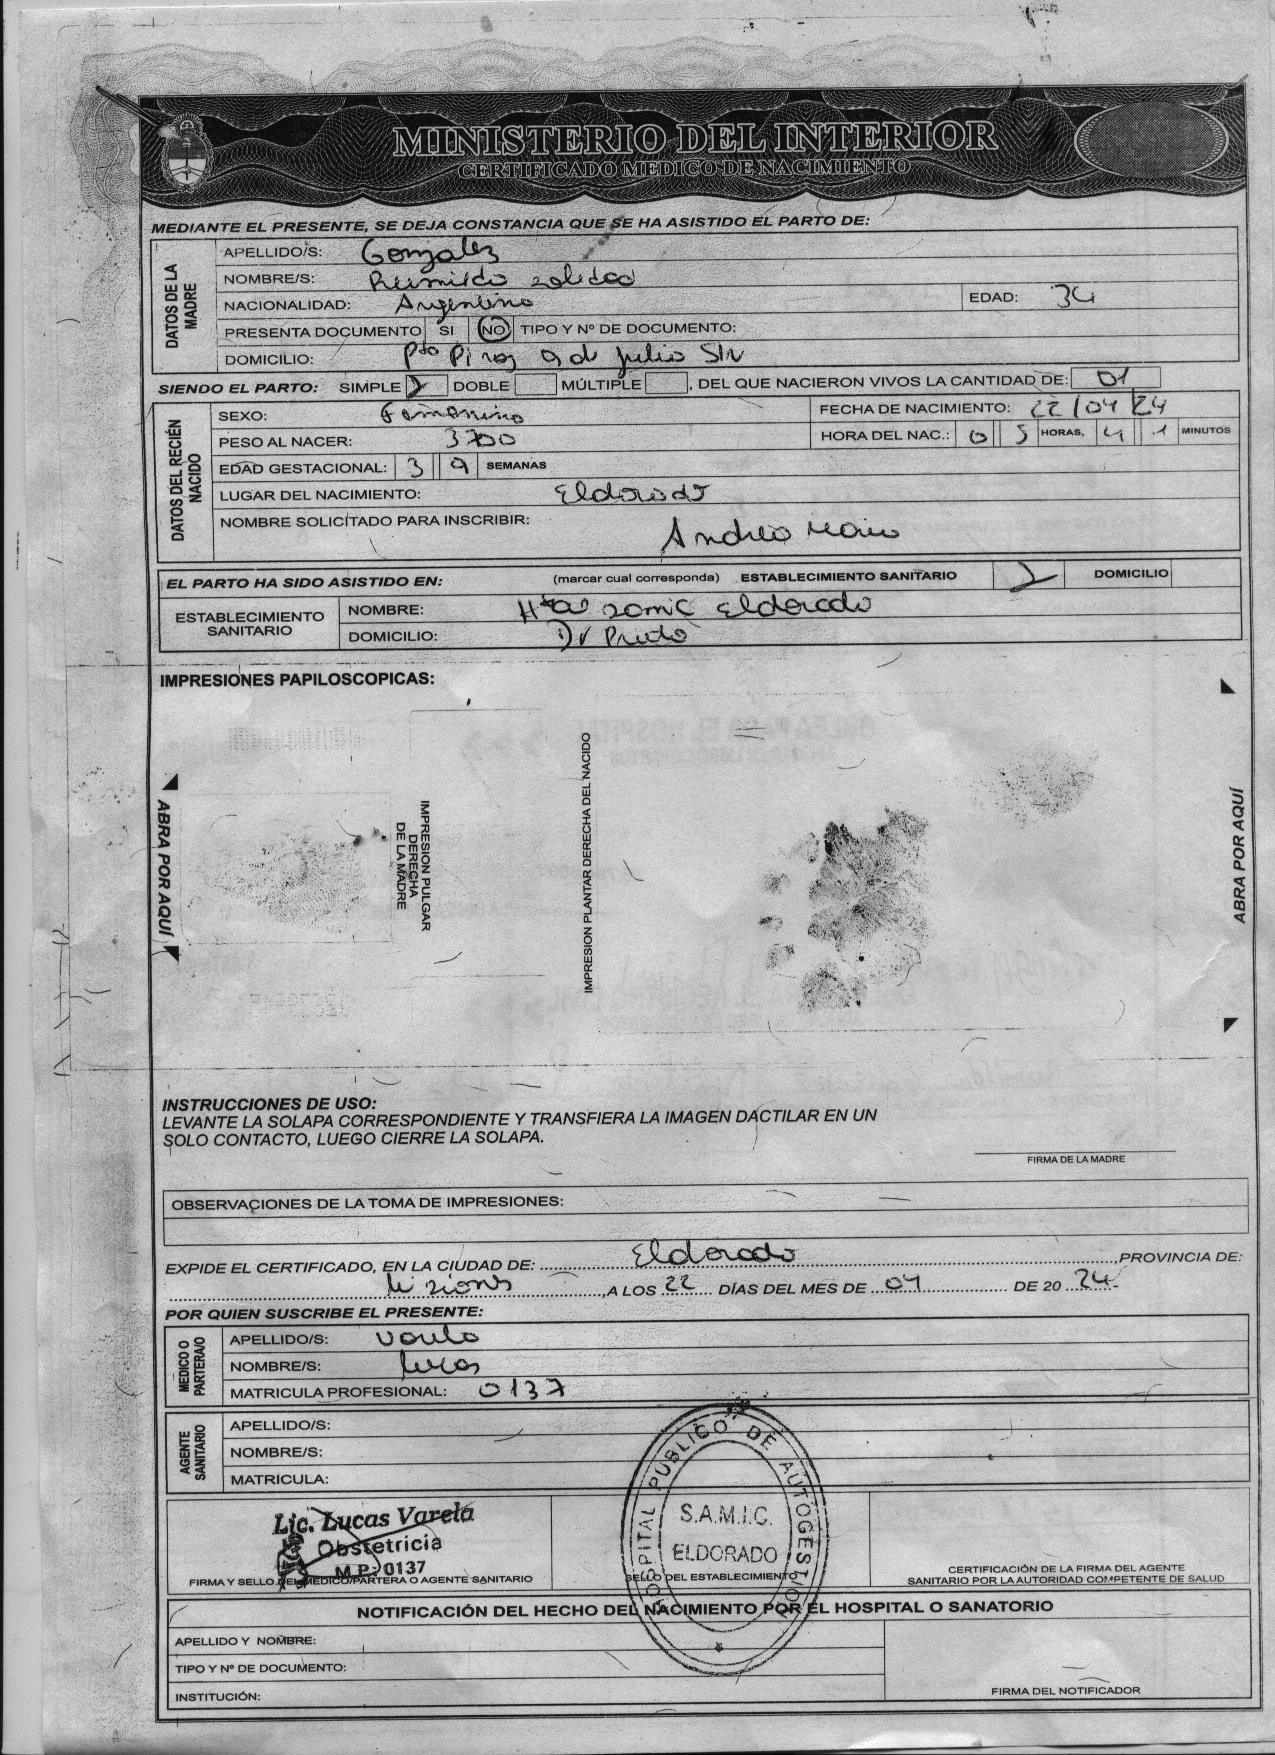 MINISTERIO DEL INTERIOR
CERTIFICADO MEDICO DE NACIMIENTO
MEDIANTE EL PRESENTE, SE DEJA CONSTANCIA QUE SE HA ASISTIDO EL PARTO DE:
DATOS DE LA MADRE
APELLIDO/S: Gonzalez
NOMBRE/S: Rumilda soledad
NACIONALIDAD: Argentina EDAD: 34
PRESENTA DOCUMENTO SI NO TIPO Y Nº DE DOCUMENTO:
DOMICILIO: Pto Piray 9 de julio S/N
SIENDO EL PARTO: SIMPLE DOBLE MÚLTIPLE , DEL QUE NACIERON VIVOS LA CANTIDAD DE: 01
DATOS DEL RECIÉN NACIDO
SEXO: Femenino FECHA DE NACIMIENTO: 22/04/24
PESO AL NACER: 3700 HORA DEL NAC.: 0 5 HORAS. 4 1 MINUTOS
EDAD GESTACIONAL: 3 9 SEMANAS
LUGAR DEL NACIMIENTO: Eldorado
NOMBRE SOLICITADO PARA INSCRIBIR: Andrea
EL PARTO HA SIDO ASISTIDO EN: (marcar cual corresponda) ESTABLECIMIENTO SANITARIO DOMICILIO
ESTABLECIMIENTO SANITARIO
NOMBRE: Htal samic Eldorado
DOMICILIO: Dr Prieto
IMPRESIONES PAPILOSCOPICAS:
ABRA POR AQUÍ
IMPRESION PULGAR DERECHA DE LA MADRE
IMPRESION PLANTAR DERECHA DEL NACIDO
ABRA POR AQUÍ
INSTRUCCIONES DE USO:
LEVANTE LA SOLAPA CORRESPONDIENTE Y TRANSFIERA LA IMAGEN DACTILAR EN UN
SOLO CONTACTO, LUEGO CIERRE LA SOLAPA.
FIRMA DE LA MADRE
OBSERVACIONES DE LA TOMA DE IMPRESIONES:
EXPIDE EL CERTIFICADO, EN LA CIUDAD DE: Eldorado ,PROVINCIA DE:
Misiones ,A LOS 22 DÍAS DEL MES DE 04 DE 20 24.-
POR QUIEN SUSCRIBE EL PRESENTE:
MEDICO O PARTERA/O
APELLIDO/S: Varela
NOMBRE/S: Lucas
MATRICULA PROFESIONAL: 0137
AGENTE SANITARIO
APELLIDO/S:
NOMBRE/S:
MATRICULA:
Lic. Lucas Varela
Obstetricia
M.P. 0137
FIRMA Y SELLO DEL MEDICO/PARTERA O AGENTE SANITARIO
HOSPITAL PUBLICO DE AUTOGESTION
S.A.M.I.C.
ELDORADO
SELLO DEL ESTABLECIMIENTO
CERTIFICACIÓN DE LA FIRMA DEL AGENTE
SANITARIO POR LA AUTORIDAD COMPETENTE DE SALUD
NOTIFICACIÓN DEL HECHO DEL NACIMIENTO POR EL HOSPITAL O SANATORIO
APELLIDO Y NOMBRE:
TIPO Y Nº DE DOCUMENTO:
INSTITUCIÓN:
FIRMA DEL NOTIFICADOR